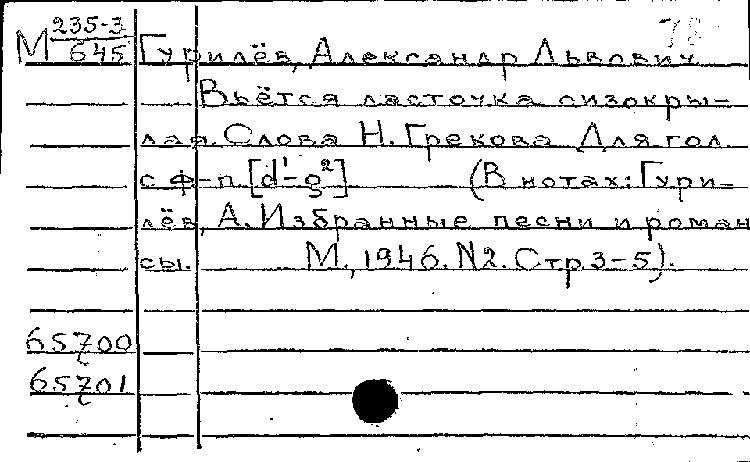 78
М 235-3/645 Гурилёв, Александр Львович
Вьётся ласточка сизокры-
лая. Слова Н. Грекова Для гол.
с ф-п. [d¹-g²] (В нотах: Гури-
лёв, А. Избранные песни и роман
сы. М., 1946. N2. Стр. 3-5).
65700
65701